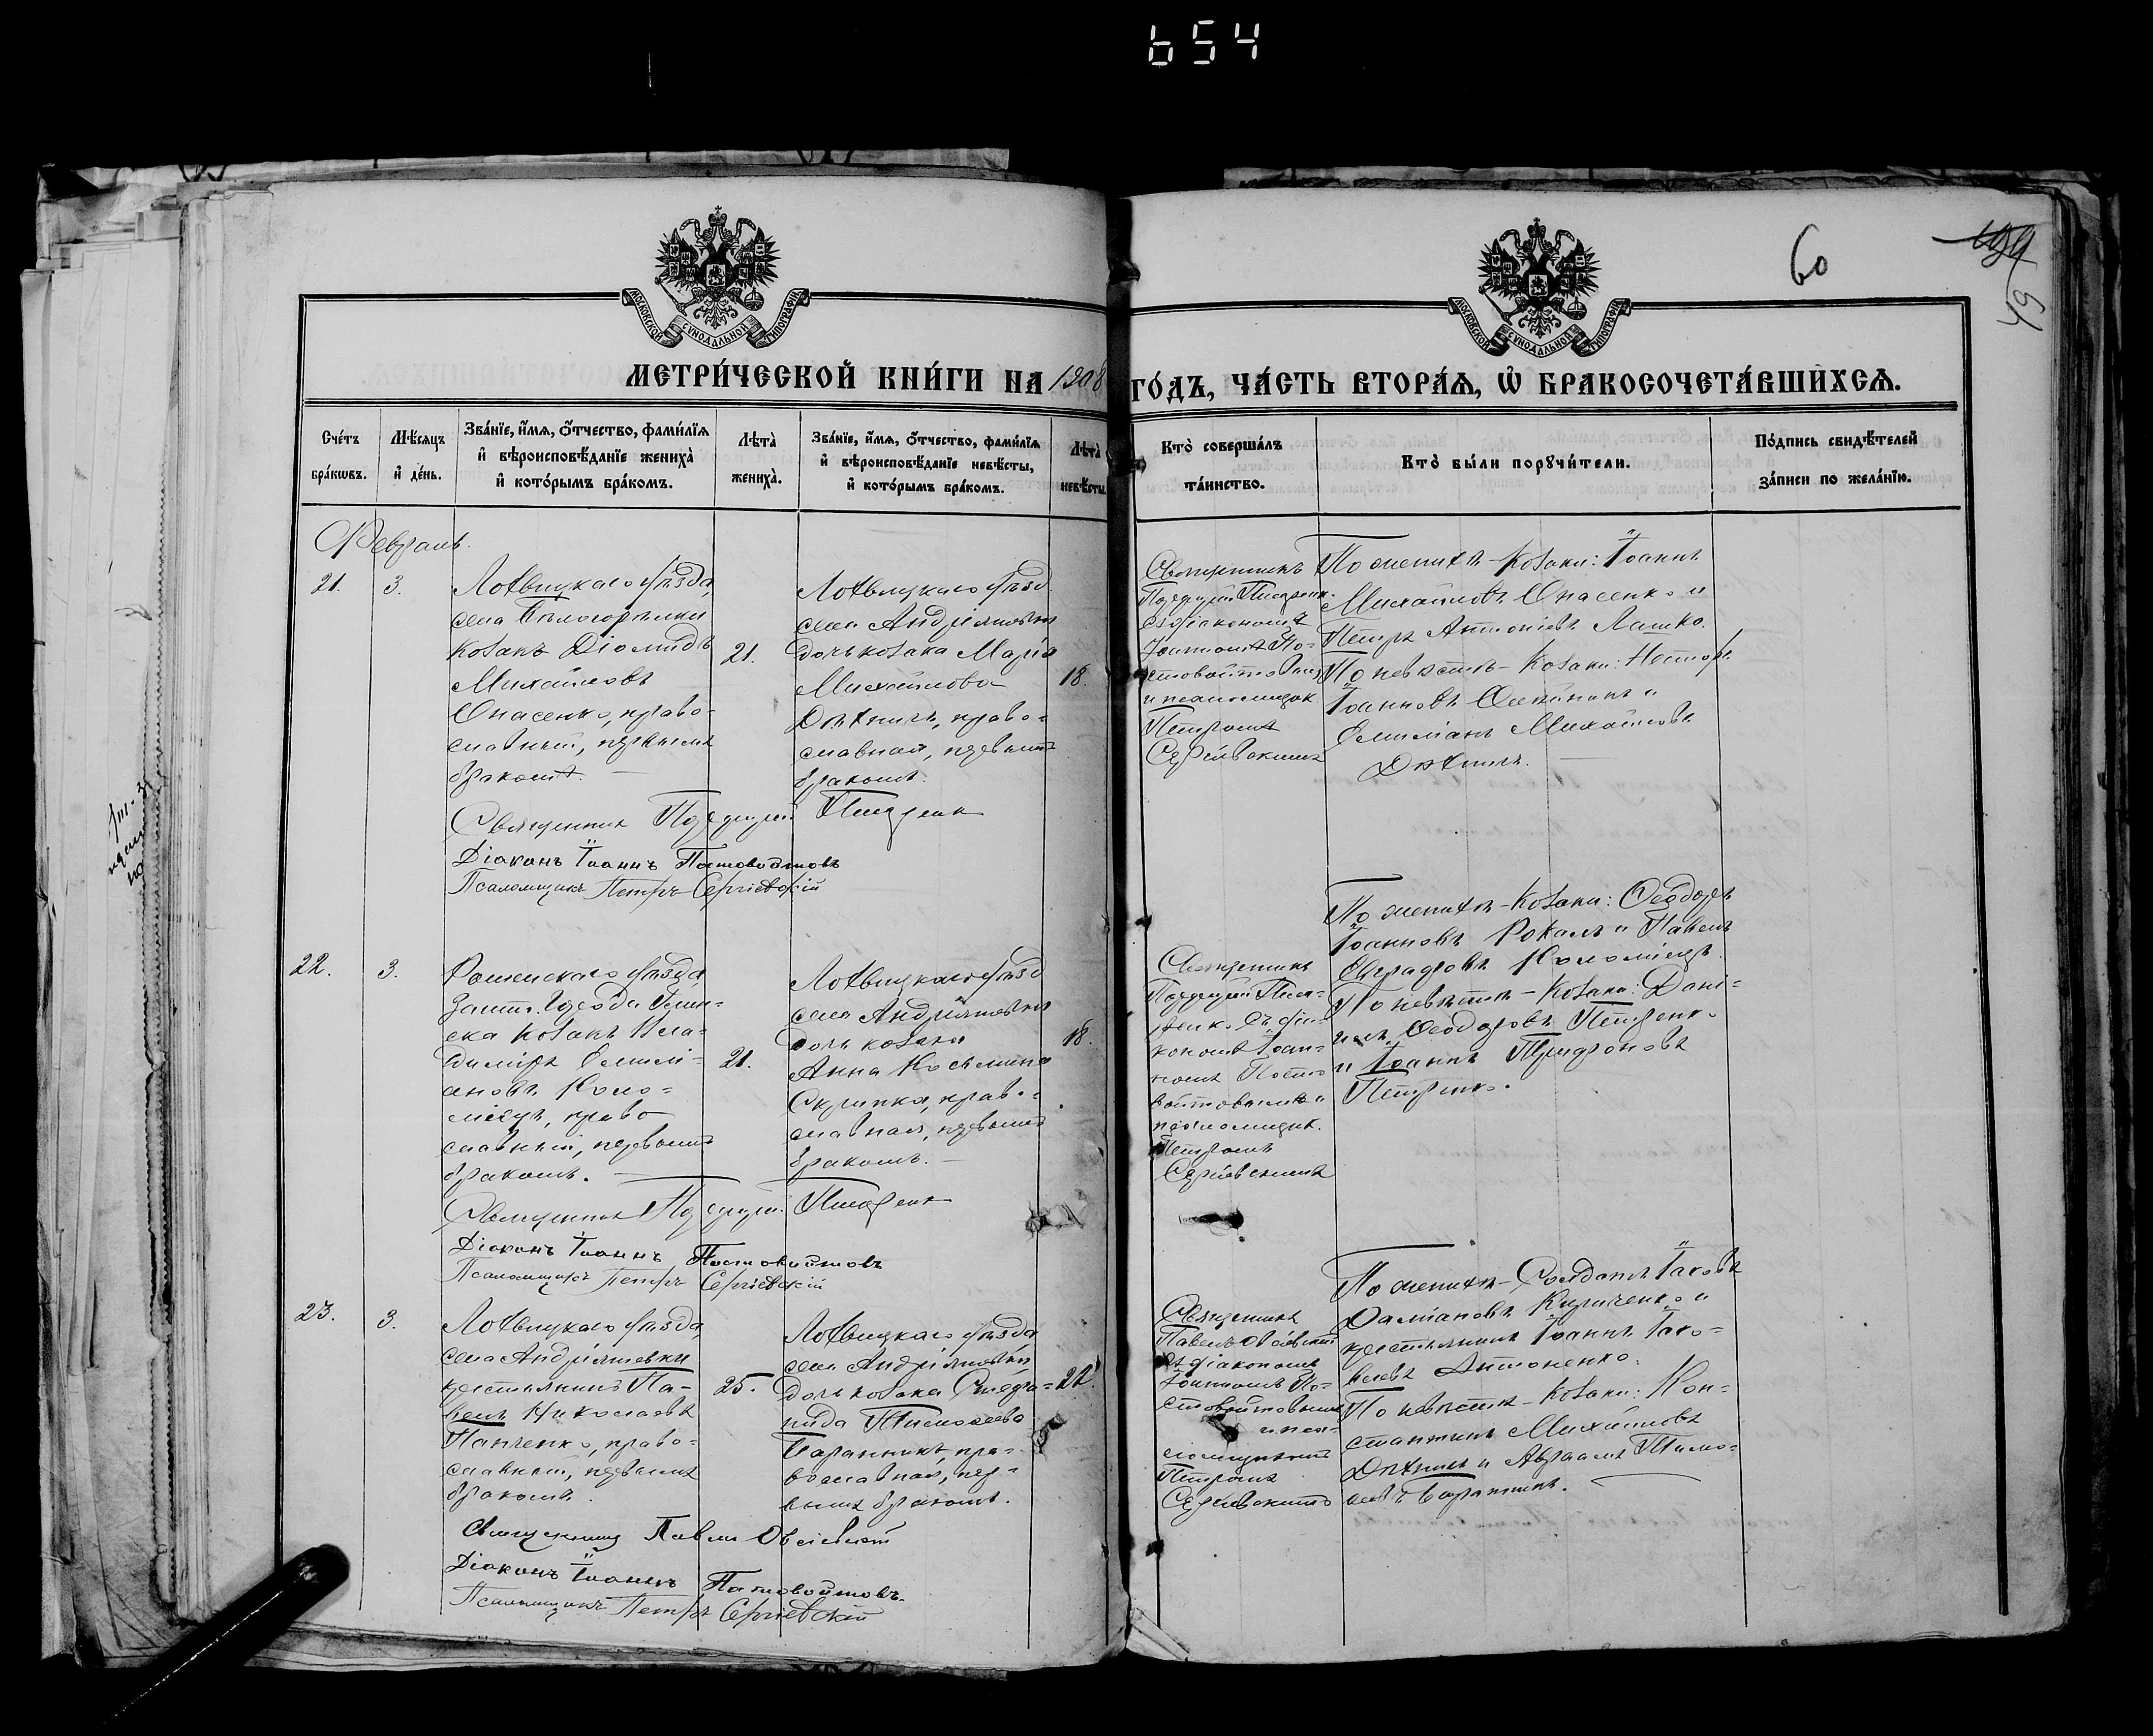 654
60
49
МОСКОВСКОЙ СѴНОДАЛЬНОЙ ТИПОГРАФІИ
МОСКОВСКОЙ СѴНОДАЛЬНОЙ ТИПОГРАФІИ
МЕТРИ́ЧЕСКОЙ КНИ́ГИ НА 1908 ГО́ДЪ, ЧА́СТЬ ВТОРА́Я, Ѡ҆ БРАКОСОЧЕТА́ВШИХСЯ.
Сче́тъ бра́кѡвъ.
Мѣ́сяцъ и҆ де́нь.
Зва́нїе, и҆́мя, ѻ҆́тчество, фами́лїя и҆ вѣроисповѣ́данїе жениха̀ и҆ кото́рымъ бра́комъ.
Лѣта̀ жениха̀.
Зва́нїе, и҆́мя, ѻ҆́тчество, фами́лїя и҆ вѣроисповѣ́данїе невѣ́сты, и҆ кото́рымъ бра́комъ.
Лѣта̀ невѣ́сты.
Кто̀ соверша́лъ та́инство.
Кто̀ бы́ли порꙋчи́тели.
По́дпись свидѣ́телей за́писи по жела́нїю.
Февраль.
21.
3.
Лохвицкаго уѣзда,
села Бѣлогорѣлки
козакъ Діомидъ
Михайловъ
Опасенко, право-
славный, первымъ
бракомъ.
21.
Лохвицкаго уѣзд.
села Андріяшевки
дочь козака Марія
Михайлова
Дѣхтиль, право-
славная, первымъ
бракомъ.
18.
Священникъ
съ діакономъ
Іоанномъ По-
стовойтовымъ
и псаломщик.
Петромъ
Сергіевскимъ
По женихѣ - козаки: Іоаннъ
Михайловъ Опасенко и
Петръ Антоніевъ Ляшко.
По невѣстѣ - козаки: Несторъ
Іоанновъ Олейникъ и
Емиліанъ Михайловъ
Дѣхтиль.
Священникъ
Діаконъ Іоаннъ Постовойтовъ
Псаломщикъ Петръ Сергіевскій
22.
3.
Роменскаго уѣзда,
ска козакъ Вла-
диміръ Емилі-
ановъ Коло-
міецъ, право
славный, первымъ
бракомъ.
21.
Лохвицкаго уѣзд
села Андріяшевки
дочь козака
Анна Косьмина
Скрипка, право-
славная, первымъ
бракомъ.
18.
Священникъ
съ діа-
кономъ Іоан-
номъ Посто
войтовымъ и
псаломщик.
Петромъ
Сергіевскимъ
По женихѣ - козаки: Ѳеодоръ
Іоанновъ Рокаль и Павелъ
Евграфовъ Коломіецъ.
По невѣстѣ - козаки: Дані-
илъ Ѳеодоровъ Петренко
и Іоаннъ Трифоновъ
Петренко.
Священникъ
Діаконъ Іоаннъ Постовойтовъ
Псаломщикъ Петръ Сергіевскій
23.
3.
Лохвицкаго уѣзда,
села Андріяшевки
крестьянинъ Па-
велъ Николаевъ
Панченко, право-
славный, первымъ
бракомъ.
25.
Лохвицкаго уѣзда,
села Андріяшевки,
дочь козака Стефа-
нида Тимоѳеева
Баранникъ, пра-
вославная, пер-
вымъ бракомъ.
22.
Священникъ
Павелъ
съ діакономъ
Іоанномъ По-
стовойтовымъ
и пса-
ломщикомъ
Петромъ
Сергіевскимъ
По женихѣ - Солдатъ Іаковъ
Даміановъ Кириченко и
крестьянинъ Іоаннъ Іако-
влевъ Антоненко.
По невѣстѣ - козаки: Кон-
стантинъ Михайловъ
Дѣхтиль и Авраамъ Тимо-
Баранникъ.
Священникъ Павелъ
Діаконъ Іоаннъ Постовойтовъ.
Псаломщикъ Петръ Сергіевскій